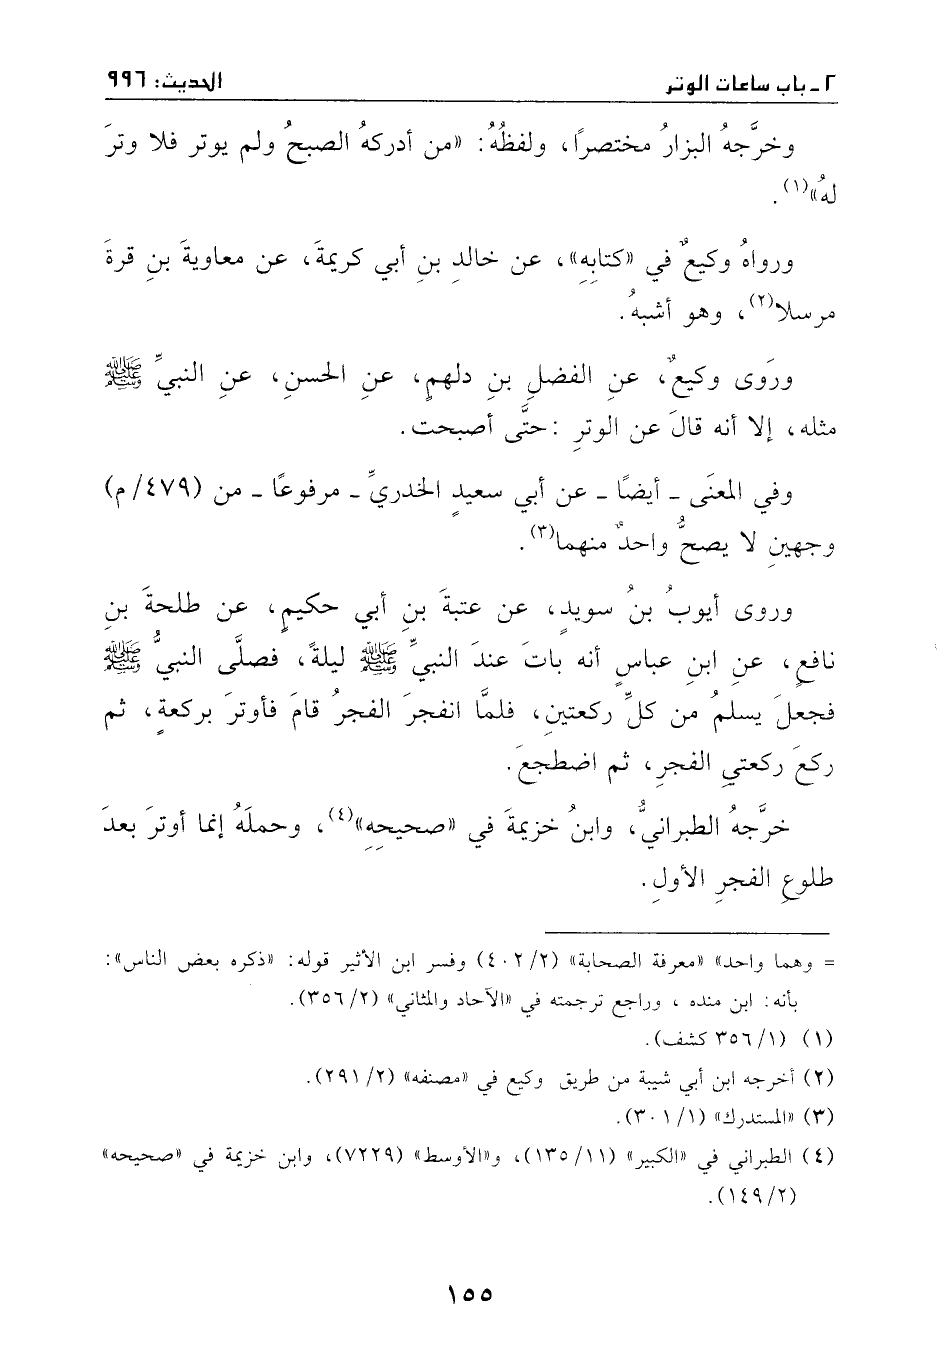 ٢ ـ باب ساعات الوتر
الحديث: ٩٩٦
وخرَّجهُ البزارُ مختصرًا، ولفظُهُ: «من أدركهُ الصبحُ ولم يوتر فلا وترَ
لهُ»(١).
ورواهُ وكيعٌ في «كتابِهِ»، عن خالدِ بنِ أبي كريمةَ، عن معاويةَ بنِ قرةَ
مرسلا(٢)، وهو أشبهُ.
ورَوى وكيعٌ، عنِ الفضلِ بنِ دلهمٍ، عنِ الحسنِ، عنِ النبيِّ ﷺ
مثله، إلا أنه قالَ عن الوترِ :حتَّى أصبحت.
وفي المعنَى ـ أيضًا ـ عن أبي سعيدٍ الخدريِّ ـ مرفوعًا ـ من (٤٧٩/ م)
وجهينِ لا يصحُّ واحدٌ منهما(٣).
وروى أيوبُ بنُ سويدٍ، عن عتبةَ بنِ أبي حكيمٍ، عن طلحةَ بنِ
نافعٍ، عنِ ابنِ عباسٍ أنه باتَ عندَ النبيِّ ﷺ ليلةً، فصلَّى النبيُّ ﷺ
فجعلَ يسلمُ من كلِّ ركعتينِ، فلمَّا انفجرَ الفجرُ قامَ فأوترَ بركعةٍ، ثم
ركعَ ركعتي الفجرِ، ثم اضطجعَ.
خرَّجهُ الطبرانيُّ، وابنُ خزيمةَ في «صحيحِهِ»(٤)، وحملَهُ إنما أوترَ بعدَ
طلوعِ الفجرِ الأولِ.
= وهما واحد» «معرفة الصحابة» (٢/ ٤٠٢) وفسر ابن الأثير قوله: «ذكره بعض الناس»:
بأنه: ابن منده ، وراجع ترجمته في «الآحاد والمثاني» (٢/ ٣٥٦).
(١) (١/ ٣٥٦ كشف).
(٢) أخرجه ابن أبي شيبة من طريق وكيع في «مصنفه» (٢/ ٢٩١).
(٣) «المستدرك» (١/ ٣٠١).
(٤) الطبراني في «الكبير» (١١/ ١٣٥)، و«الأوسط» (٧٢٢٩)، وابن خزيمة في «صحيحه»
(٢/ ١٤٩).
١٥٥